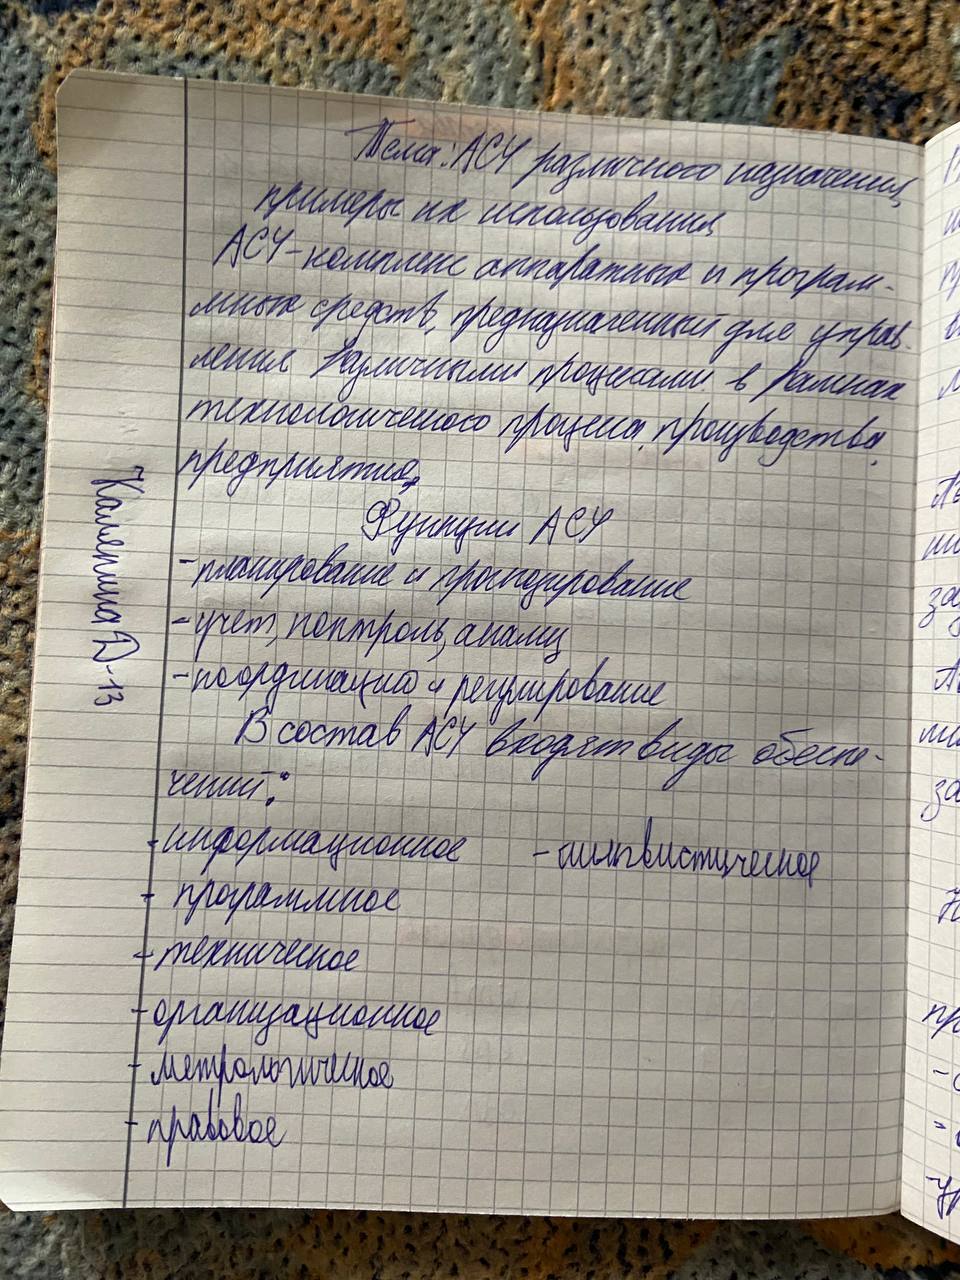 Тема: АСУ различного назначения,
примеры их использования
АСУ-комплекс аппаратных и програм-
мных средств, предназначенный для управ-
ления различными процессами в рамках
технологического процесса, производства,
предприятия.
Функции АСУ
-планирование и прогнозирование
-учет, контроль, анализ
-координацию и регулирование
В состав АСУ входят виды обеспе-
чений:
-информационное -лингвистическое
- программное
-техническое
-организационное
- метрологическое
- правовое
Д-13